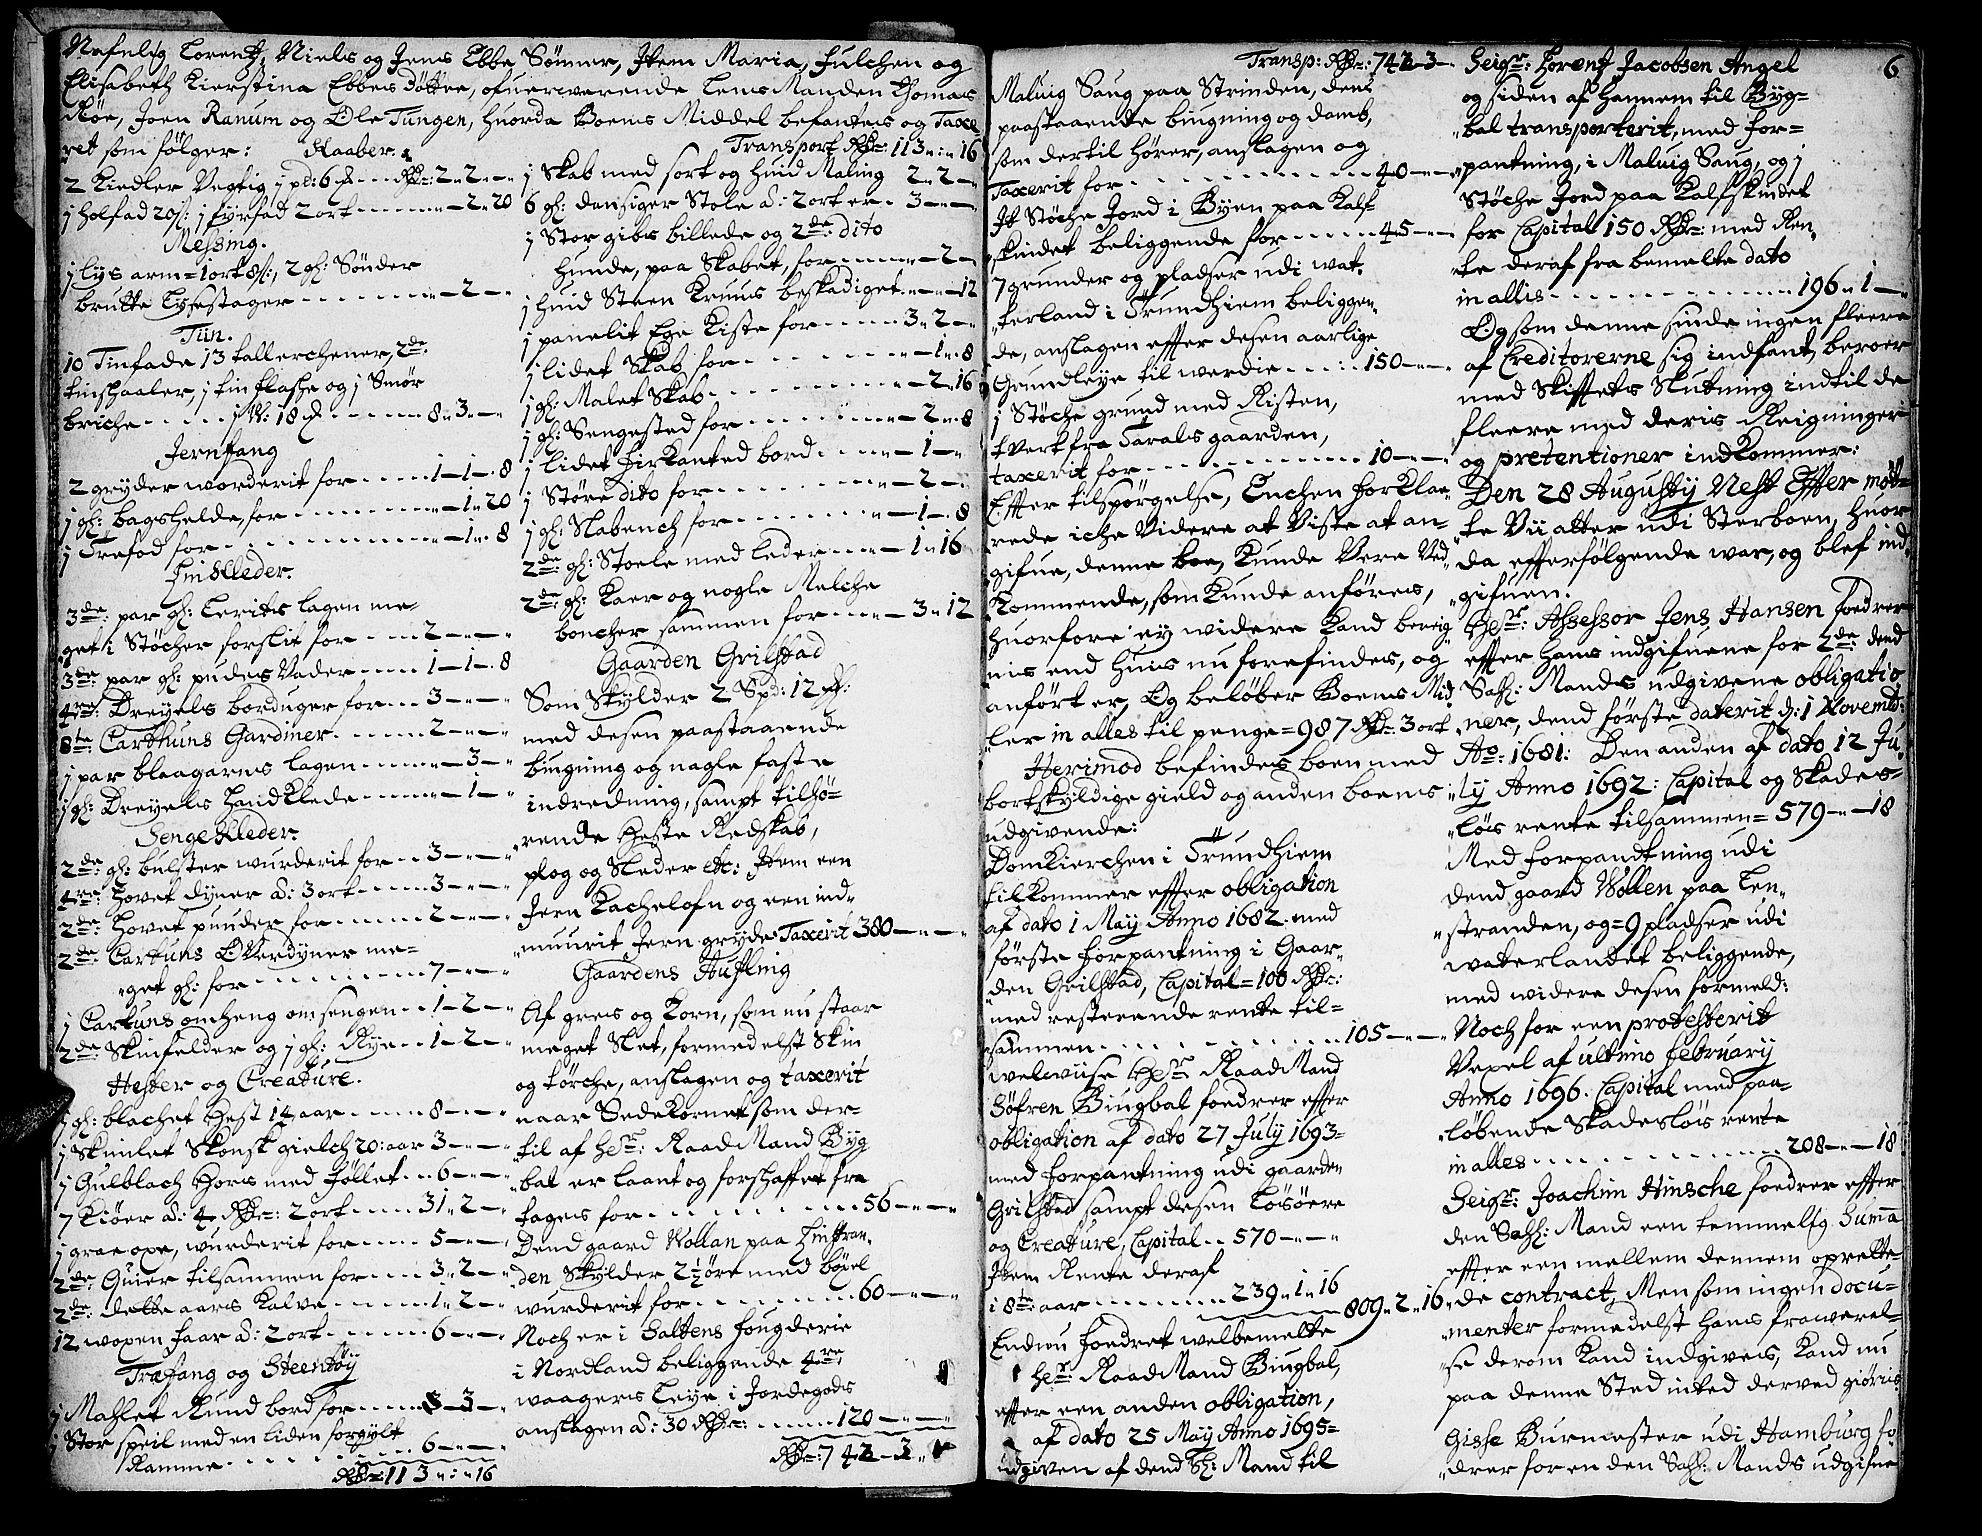 Nefnlig Lorentz, Niels og Jens Ebbe Sønner, Item Maria, Fulchen og
Elisabeth Kierstina Ebbes døttre, ofuerwerende Lens Manden Thomas
Røe, Joen Ranum og Ole Tungen, huorda Boens Middel befantes og Taxe-
ret som følger:
Kaaber.
2 Kiedler Vegtig j pd: 6 ... Rdr: 2 - 2 -
j holfad 20 s: j fyrfad 2 ort - 2 - 20
Messing.
j lys arm = 1 ort 8 s:, 2 gl: Sønder
brutte Lysestager - 2 -
Tin.
10 Tinfade 13 tallerchener, 2de
tinschaaler, j tin flasche og j Smør
briche ... 18 ... 8 - 3 -
Jernfang
2 gryder worderit for 1 - 1 - 8
j gl: bagshelde, for - 1 - 20
j Trefod for - 1 - 8
Lin Kleder.
3de par gl: Lerits lagen me-
get i Støcher forslit for 2 - -
3de par gl: pudes Vader 1 - 1 - 8
4re Dreyels borduger for 3 - -
8te Carthuns Gardiner 2 - -
j par blaagarns lagen - 3 -
j gl: Dreyels Handklede - 1 -
Senge Kleder.
2de gl: bulster wurderit for 3 - -
4re Hovet dyner a: 3 ort 3 - -
2de Hovet puuder for 2 - -
2de Cartuns Overdyner me-
get gl: for 7 - -
j Cartuns omheng om sengen 1 - 2 -
2de Skinfelder og j gl: Rye 1 - 2 -
Hester og Creature.
j gl: blachet Hest 14 aar 8 - -
j Skimlet Skonsk gielch 20: aar 3 - -
j Gulblach Hors med Føllet 6 - -
7 Kiøer a: 4 Rdr: 2 ort 31 - 2 -
j graa oxe, wurderit for 5 - -
2de Quier tilsammen for 3 - 2 -
2de dette aars Kalve 1 - 2 -
12 woxen faar a: 2 ort 6 - -
Træfang og Steentøy
j Mahlet Rund bord for - 3 -
j Stor speil med en liden forgylt
Ramme 6 - -
Rdr: 113 - : - 16
Transport Rdr: 113 - : - 16
j Skab med sort og huid Maling 2 - 2 -
6 gl: dansiger Stole a: 2 ort er 3 - -
j Stor gibs billede og 2de dito
Hunde, paa Skabet, for - 2 -
j huid Steen Kruus beskadiget - - 12
j panelit Ege Kiste for 3 - 2 -
j lidet Skab for - 1 - 8
j gl: Malet Skab - 2 - 16
j gl: Sengested for - 2 - 8
j lidet firkanted bord - 1 -
j Støre dito for - 2 -
j gl: Slabench for - 1 - 8
2de gl: Stoele med leder - 1 - 16
2de gl: Kaer og nogle Melche
boncher sammen for - 3 - 12
Gaarden Grilstad
Som Skylder 2 Spd: 12
med desen paastaaende
bugning og nagle faste
indredning, sampt tilhø-
rende Heste Redskab,
plog og Sleder etc: Item een
Jern Kachelofn og een ind-
muurit Jern gryde Taxerit 380 - -
Gaardens Aufling
Af gres og Korn, som nu staar
meget Slet, formedelst Skin
og tørche, anslagen og taxerit
naar Sædekornet som der-
til af Hr: Raad Mand Byg
bal er laant og forschaffet fra
tages for 56 - -
Dend gaard Wollan paa Linstran-
den Skylder 2½ øre med bøxel
wurderit for 60 - -
Noch er i Saltens fougderie
i Nordland beliggende 4re
waagers Leye i Jordegods
anslagen a: 30 Rdr: 120 - -
Rdr: 742 - 3 -
Transp: Rdr: 742 - 3 -
Maluig Saug paa Strinden, dens
paastaaende bugning og damb,
som dertil hører, anslagen og
Taxerit for 40 - -
It Støche Jord i Byen paa Kalf-
skindet beliggende for 45 - -
7 grunder og pladser udi wat-
terland i Trundhiem beliggen-
de, anslagen effter desen aarlige
Grundleye til werdie 150 - -
j Støche grund med Risten,
tverk fra Taralsgaarden,
taxerit for 10 - -
Effter tilspørgelse, Enchen forklae-
rede iche Videre at Viste at an-
gifue, denne boe, Kunde Vere Ved-
kommende, som Kunde anføres,
Huorfore ey widere Kand bereig-
nis end huis nu forefindes, og
anført er, Og beløber Boens Mid-
ler in alles til penge = 987 Rdr: 3 ort
Herimod befindes boen med
bortskyldige gield og anden boens
udgivende:
Domkierchen i Trundhiem
tilkommer effter obligation
af dato 1 May Anno 1682 med
første forpantning i Gaar-
den Grilstad, Capital = 100 Rdr:
med resterende rente til-
sammen 105 - -
Welwiise Hr: Raad Mand
Søfren Biugbal foedrer effter
obligation af dato 27 July 1693 =
med forpantning udi gaarden
Grilstad sampt desen Løsøere
og Creature, Capital 570 - -
Item Rente deraf
i 8te aar 239 - 1 - 16
809 - 2 - 16
Endnu foedret welbemelte
Hr: Raad Mand Biugbal,
effter een anden obligation,
af dato 25 May Anno 1695 =
udgiven af dend Sl: Mand til
6
Seigr: Lorentz Jacobsen Angel
og siden af hannem til Byg-
bal transporterit, med for-
pantning, i Maluig Saug, og j
Støche Jord paa Kalfskindet
for Capital 150 Rdr: med Ren-
te deraf fra bemelte dato
in allis 196 - 1 -
Og som denne sinde ingen fleere
af Creditorerne sig indfant, beroer
med Skifftets Slutning indtil de
fleere med deris Reigninger
og pretentioner indkommer:
Den 28 Augusty Nest Effter mød-
te Vii atter udi Sterboen, Huor
da effterfølgende war, og blef ind-
gifuen:
Hr: Assessor Jens Hansen foedrer
effter hans indgifuene for 2de dend
Sahl: Mands udgivene obligatio
ner, dend første daterit d: 1 Novemb:
Ao: 1681: Den anden af dato 12 Ju-
ly Anno 1692: Capital og Skades-
løs rente tilsammen = 579 - - 18
Med forpandtning udi
dend gaard Wollen paa Len-
stranden, og = 9 pladser udi
waterlandet beliggende,
med widere desen formeld:
Noch for een protesterit
Vexel af ultimo february
Anno 1696. Capital med paa-
løbende Skadesløs rente
in alles 208 - - 18
Seigr: Joachim Hinsche foedrer effter
den Sahl: Mand een temmelig Summa
effter een mellem dennem oprette-
de contract, Men som ingen docu-
menter formedelst hans frawerel-
se derom Kand indgives, Kand nu
paa denne Sted inted derved giøris
Gisse Burmester udi Hamburg fo-
drer for en den Sahl: Mands udgifne